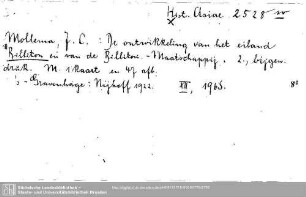 Hist. Asiae 2528 m
Mollema, J. C. : De ontwikkeling van het eiland
Billiton en van de Billiton-Maatschappij. 2., bijgew.
druk. M. 1 kaart en 47 afb.
's-Gravenhage: Nijhoff 1922. III, 196 S. 8°
Sächsische Landesbibliothek -
Staats- und Universitätsbibliothek Dresden